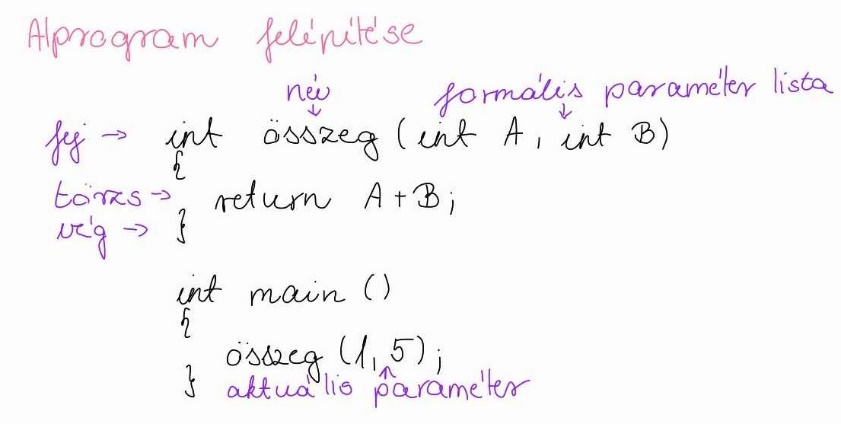 Alprogram felépítése
név formális paraméter lista
fej → int összeg (int A, int B)
{
törzs → return A + B;
vég → }
int main ()
{
összeg (1, 5);
} aktuális paraméter